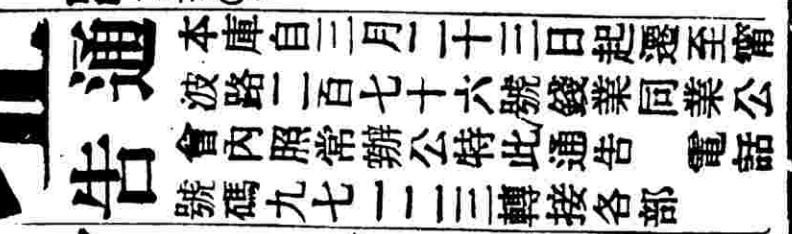 通告
本庫自三月二十三日起遷至甯
波路二百七十六號錢業同業公
會內照常辦公特此通告　電話
號碼九七一二三轉接各部